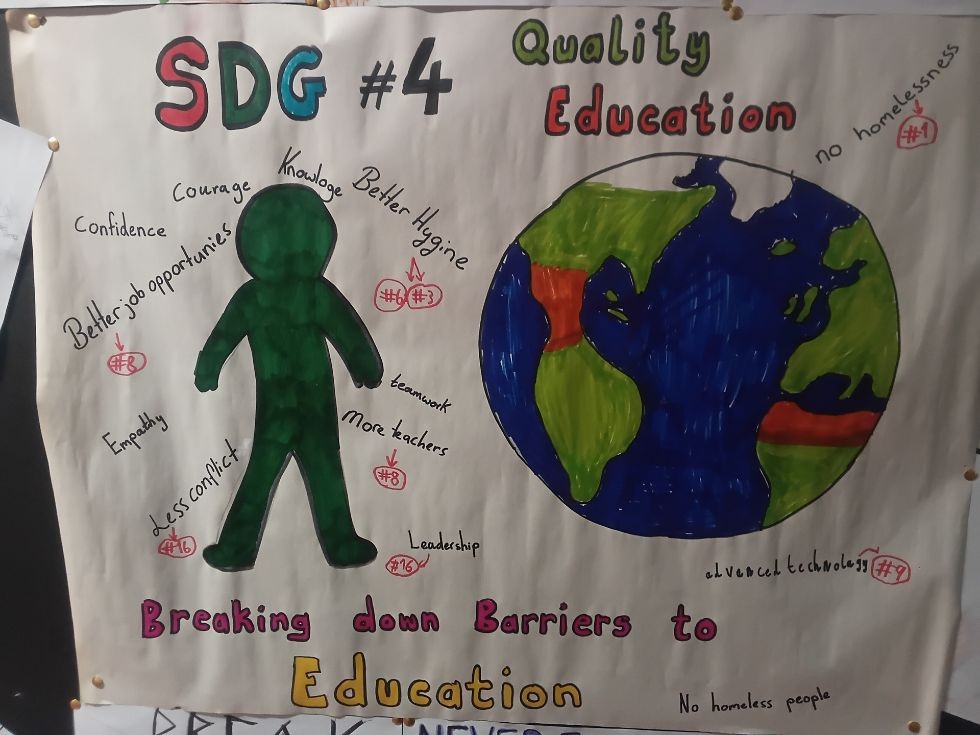 SDG #4
Quality
Education
no homelessness
#1
Knowloge
Courage
Better Hygine
#6 #3
Confidence
Better job opportunies
#8
teamwork
More teachers
#8
Empathy
Less conflict
#16
Leadership
#16
advanced technology #9
Breaking down Barriers to
Education
No homeless people